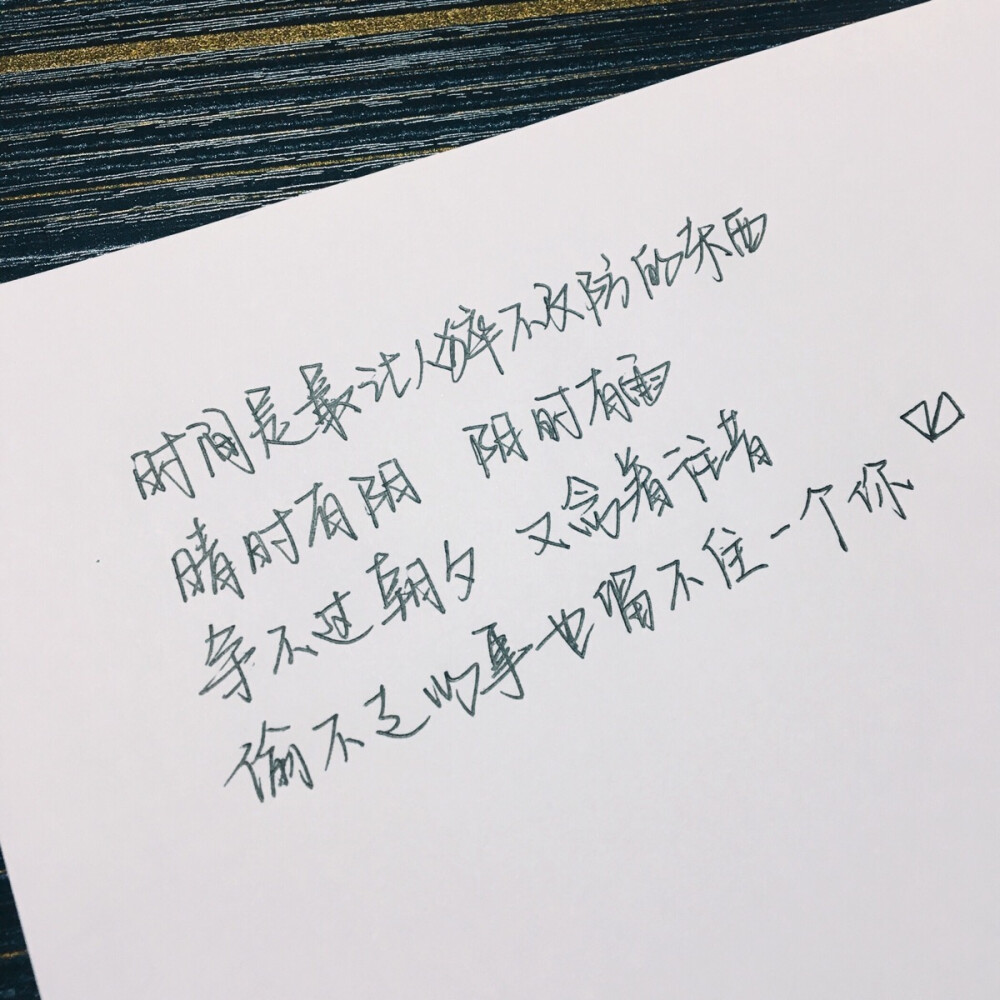 时间是最让人猝不及防的东西
晴时有阴 阴时有雨
争不过朝夕 又念着往昔
偷不走心事也留不住一个你